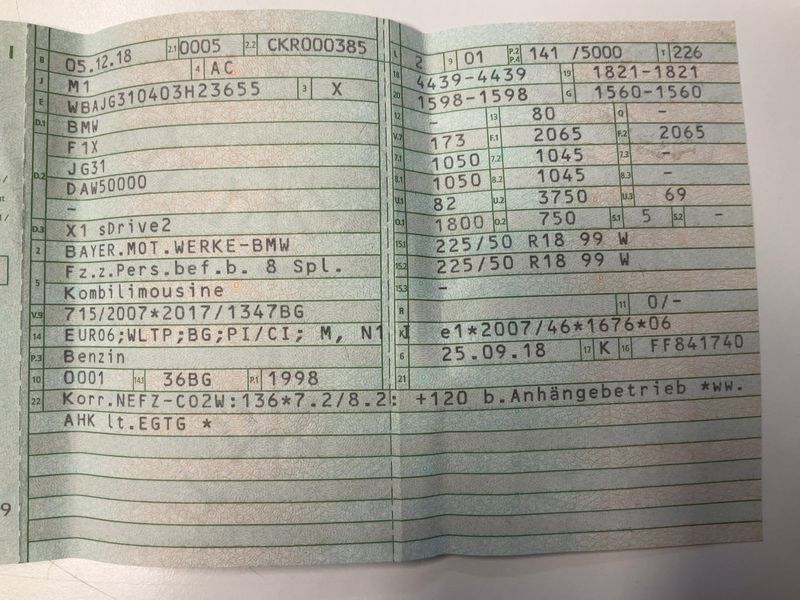 I
B 05.12.18 2.1 0005 2.2 CKR000385
J M1 4 AC
E WBAJG310403H23655 3 X
D.1 BMW
F1X
D.2 JG31
DAW50000
-
D.3 X1 sDrive2
2 BAYER.MOT.WERKE-BMW
5 Fz.z.Pers.bef.b. 8 Spl.
Kombilimousine
V.9 715/2007*2017/1347BG
14 EURO6;WLTP;BG;PI/CI; M, N1 I
P.3 Benzin
10 0001 14.1 36BG P.1 1998
L 2 9 01 P.2 P.4 141 /5000 T 226
18 4439-4439 19 1821-1821
20 1598-1598 G 1560-1560
12 - 13 80 Q -
V.7 173 F.1 2065 F.2 2065
7.1 1050 7.2 1045 7.3 -
8.1 1050 8.2 1045 8.3 -
U.1 82 U.2 3750 U.3 69
O.1 1800 O.2 750 S.1 5 S.2 -
15.1 225/50 R18 99 W
15.2 225/50 R18 99 W
15.3 -
R 11 0/-
K e1*2007/46*1676*06
6 25.09.18 17 K 16 FF841740
21
22 Korr.NEFZ-CO2W:136*7.2/8.2: +120 b.Anhängebetrieb *ww.
AHK lt.EGTG *
9